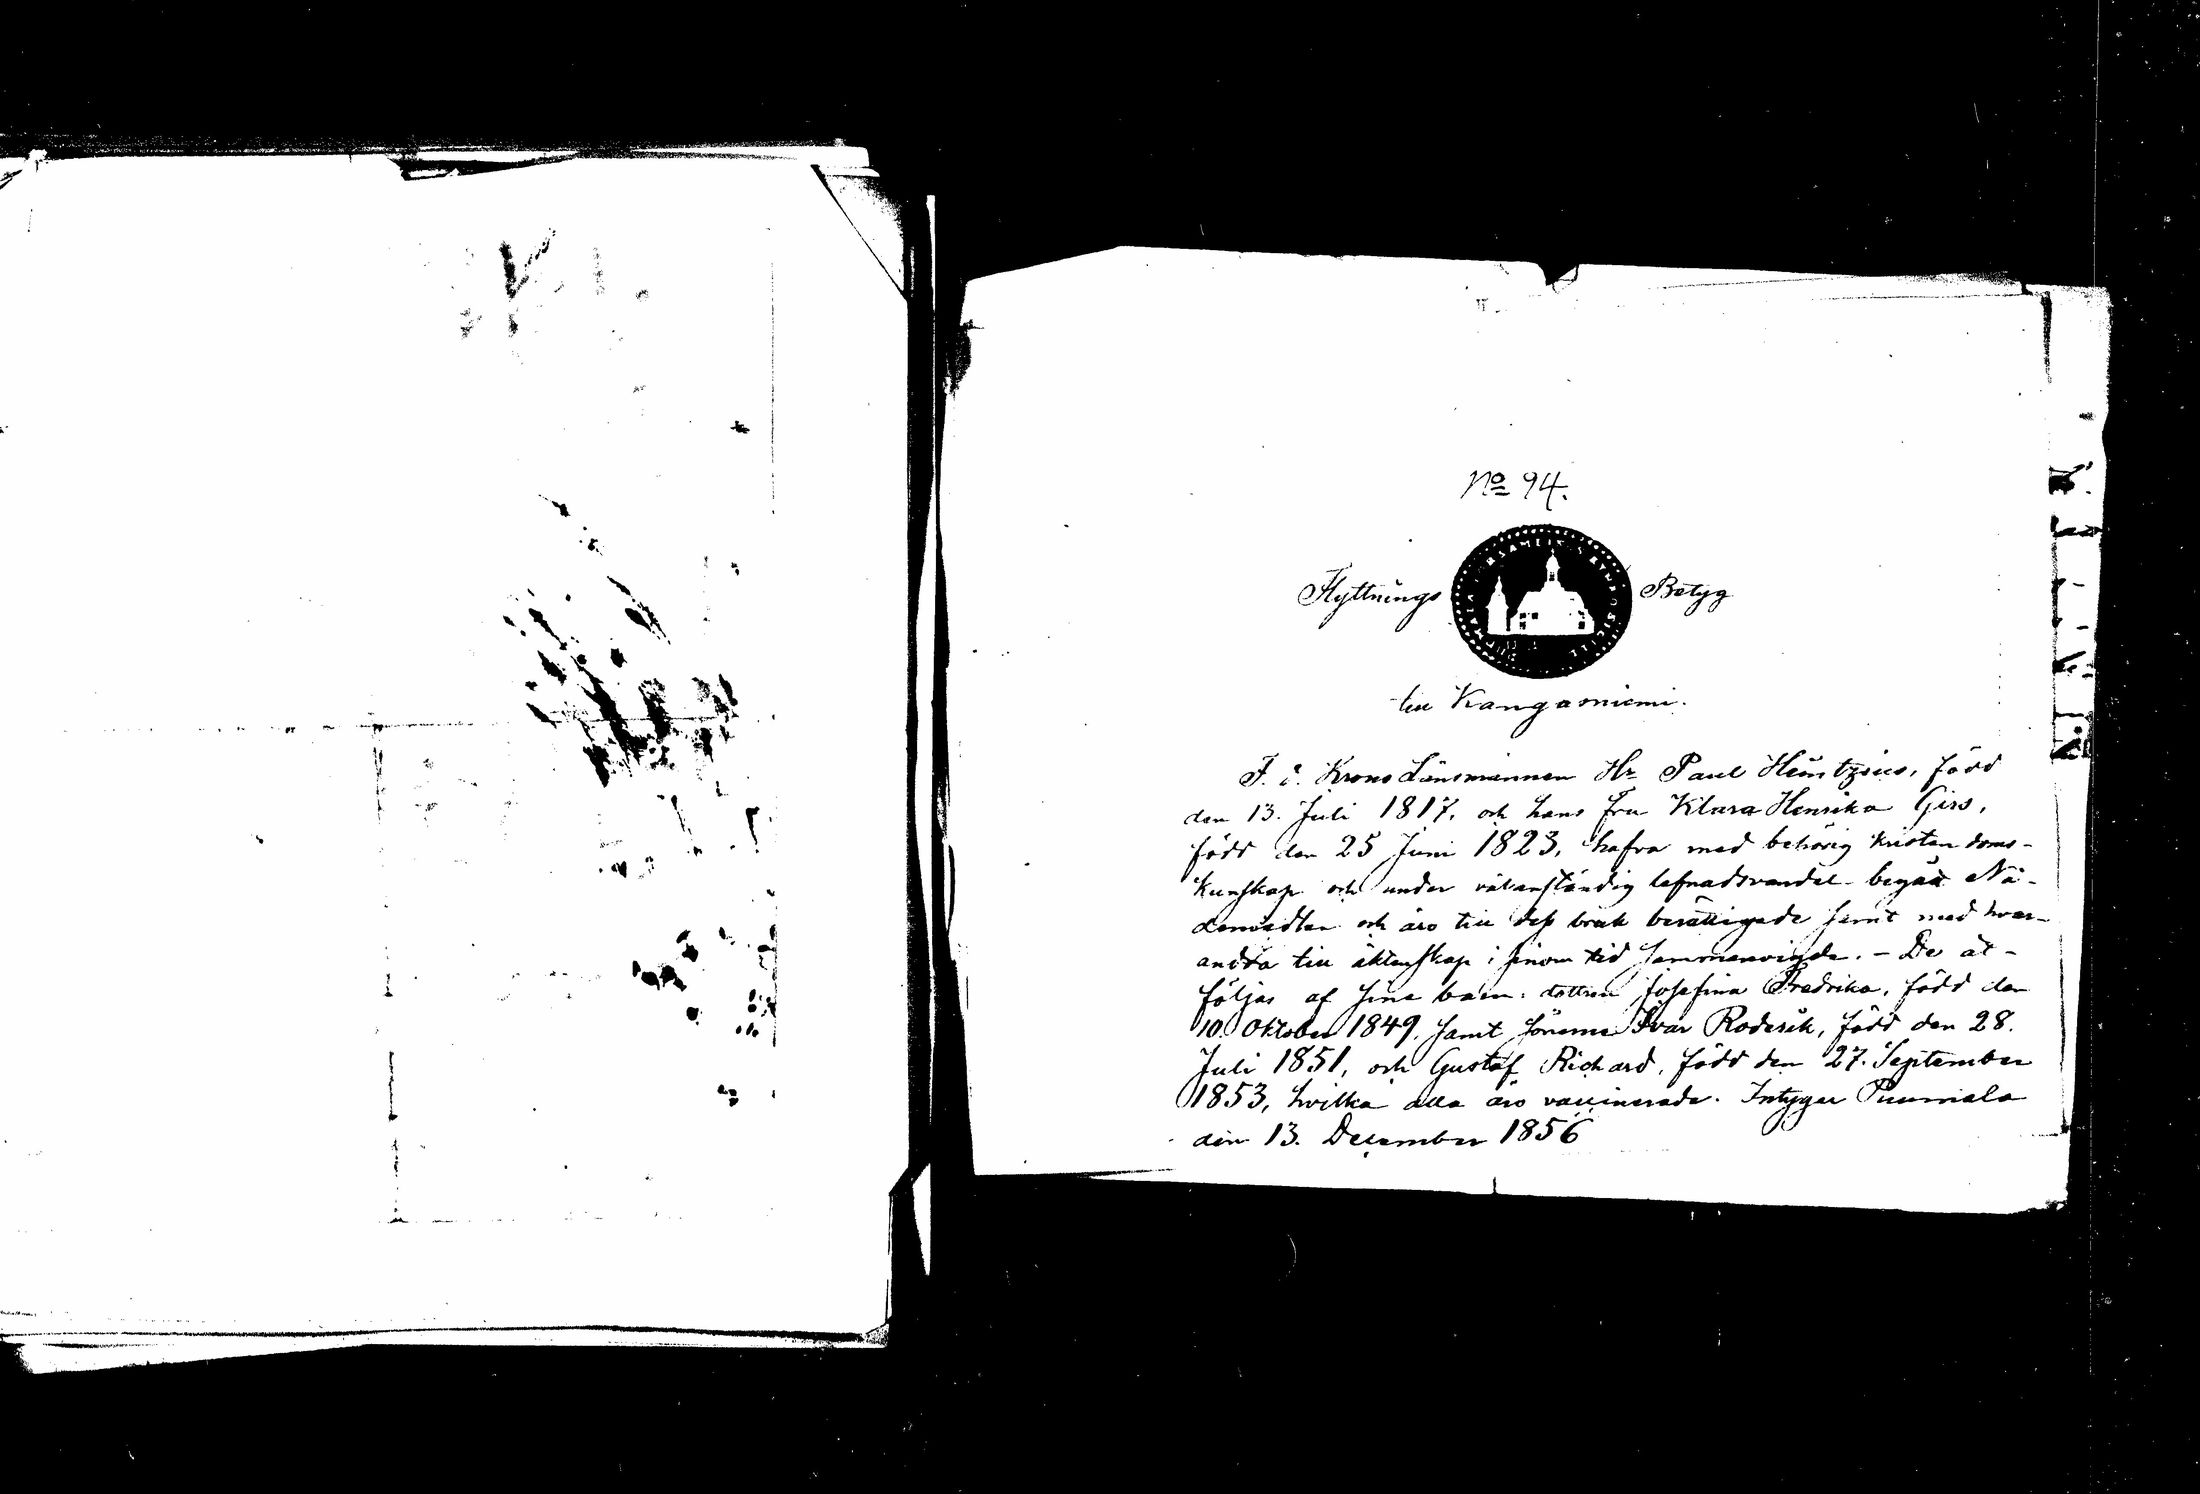 No 94.
Flyttnings Betyg
till Kangasniemi.
F. d. Krono Länsmannen Hr Paul Heintzius, född
den 13. Juli 1817, och hans fru Klara Henrika Girs,
född den 25 Juni 1823, hafva med behörig kristendoms-
kunskap och under välanständig lefnadsvandel begått Nå-
denvadten och äro till dess bruk berättigade samt med hvar-
andra till äktenskap i sinom tid sammanvigde. - De åt-
följas af sine barn: dottren Josefina Fredrika, född den
10. Oktober 1849, samt sönerne Ivar Roderik, född den 28.
Juli 1851, och Gustaf Richard, född den 27. September
1853, hvilka alla äro vaccinerade. Intygar Puumala
den 13. December 1856